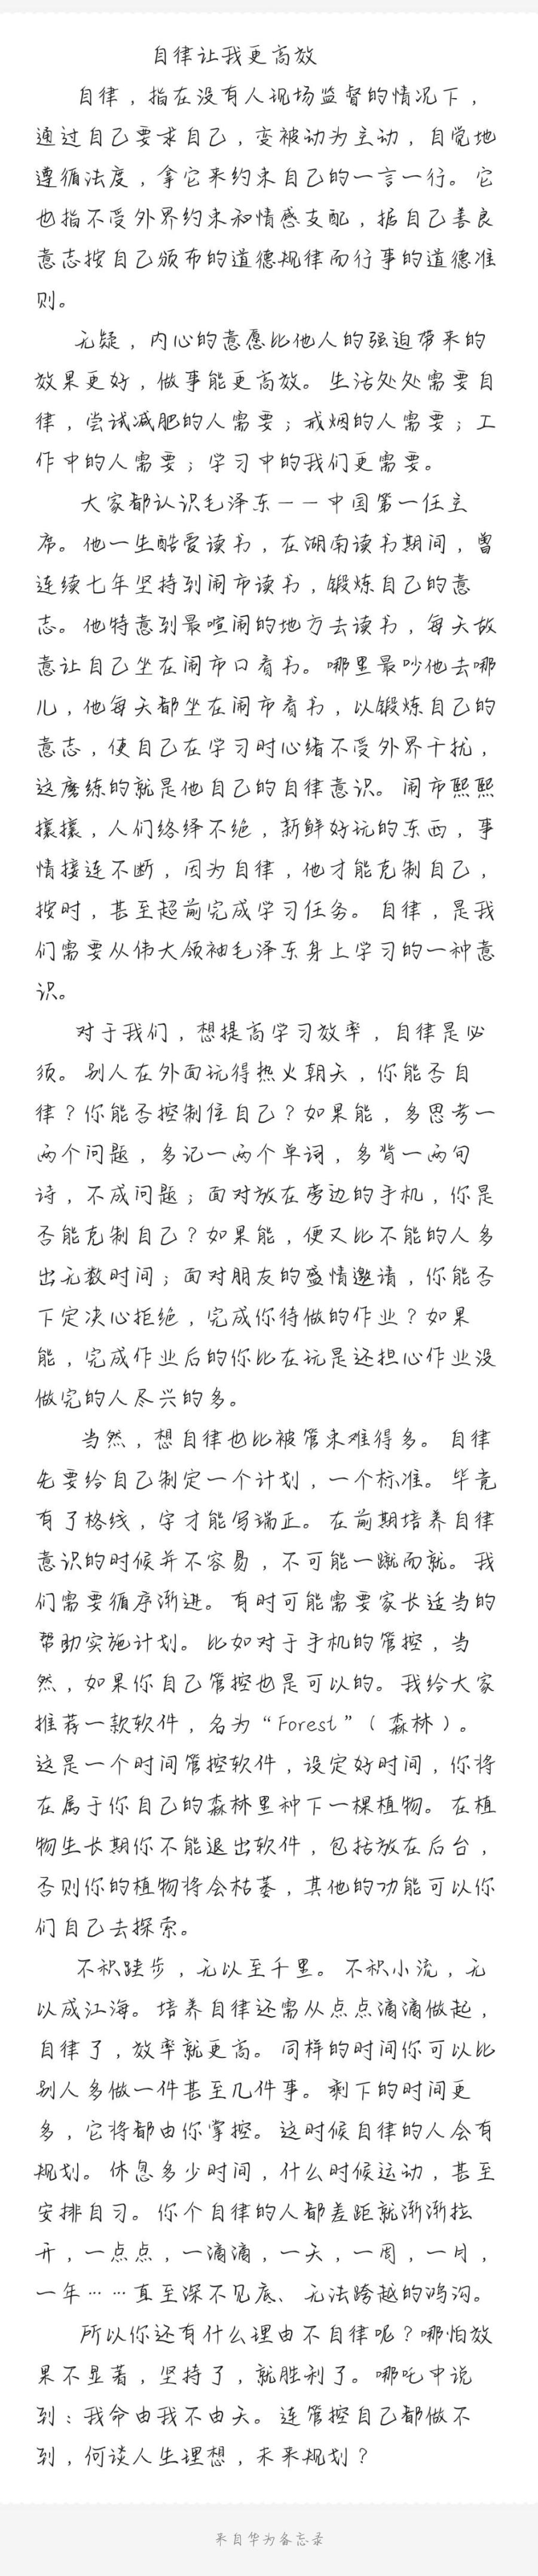 自律让我更高效
自律，指在没有人现场监督的情况下，
通过自己要求自己，变被动为主动，自觉地
遵循法度，拿它来约束自己的一言一行。它
也指不受外界约束和情感支配，据自己善良
意志按自己颁布的道德规律而行事的道德准
则。
无疑，内心的意愿比他人的强迫带来的
效果更好，做事能更高效。生活处处需要自
律，尝试减肥的人需要；戒烟的人需要；工
作中的人需要；学习中的我们更需要。
大家都认识毛泽东——中国第一任主
席。他一生酷爱读书，在湖南读书期间，曾
连续七年坚持到闹市读书，锻炼自己的意
志。他特意到最喧闹的地方去读书，每天故
意让自己坐在闹市口看书。哪里最吵他去哪
儿，他每天都坐在闹市看书，以锻炼自己的
意志，使自己在学习时心绪不受外界干扰，
这磨练的就是他自己的自律意识。闹市熙熙
攘攘，人们络绎不绝，新鲜好玩的东西，事
情接连不断，因为自律，他才能克制自己，
按时，甚至超前完成学习任务。自律，是我
们需要从伟大领袖毛泽东身上学习的一种意
识。
对于我们，想提高学习效率，自律是必
须。别人在外面玩得热火朝天，你能否自
律？你能否控制住自己？如果能，多思考一
两个问题，多记一两个单词，多背一两句
诗，不成问题；面对放在旁边的手机，你是
否能克制自己？如果能，便又比不能的人多
出无数时间；面对朋友的盛情邀请，你能否
下定决心拒绝，完成你待做的作业？如果
能，完成作业后的你比在玩是还担心作业没
做完的人尽兴的多。
当然，想自律也比被管束难得多。自律
先要给自己制定一个计划，一个标准。毕竟
有了格线，字才能写端正。在前期培养自律
意识的时候并不容易，不可能一蹴而就。我
们需要循序渐进。有时可能需要家长适当的
帮助实施计划。比如对于手机的管控，当
然，如果你自己管控也是可以的。我给大家
推荐一款软件，名为“Forest”（森林）。
这是一个时间管控软件，设定好时间，你将
在属于你自己的森林里种下一棵植物。在植
物生长期你不能退出软件，包括放在后台，
否则你的植物将会枯萎，其他的功能可以你
们自己去探索。
不积跬步，无以至千里。不积小流，无
以成江海。培养自律还需从点点滴滴做起，
自律了，效率就更高。同样的时间你可以比
别人多做一件甚至几件事。剩下的时间更
多，它将都由你掌控。这时候自律的人会有
规划。休息多少时间，什么时候运动，甚至
安排自习。你个自律的人都差距就渐渐拉
开，一点点，一滴滴，一天，一周，一月，
一年……直至深不见底、无法跨越的鸿沟。
所以你还有什么理由不自律呢？哪怕效
果不显著，坚持了，就胜利了。哪吒中说
到：我命由我不由天。连管控自己都做不
到，何谈人生理想，未来规划？
来自华为备忘录